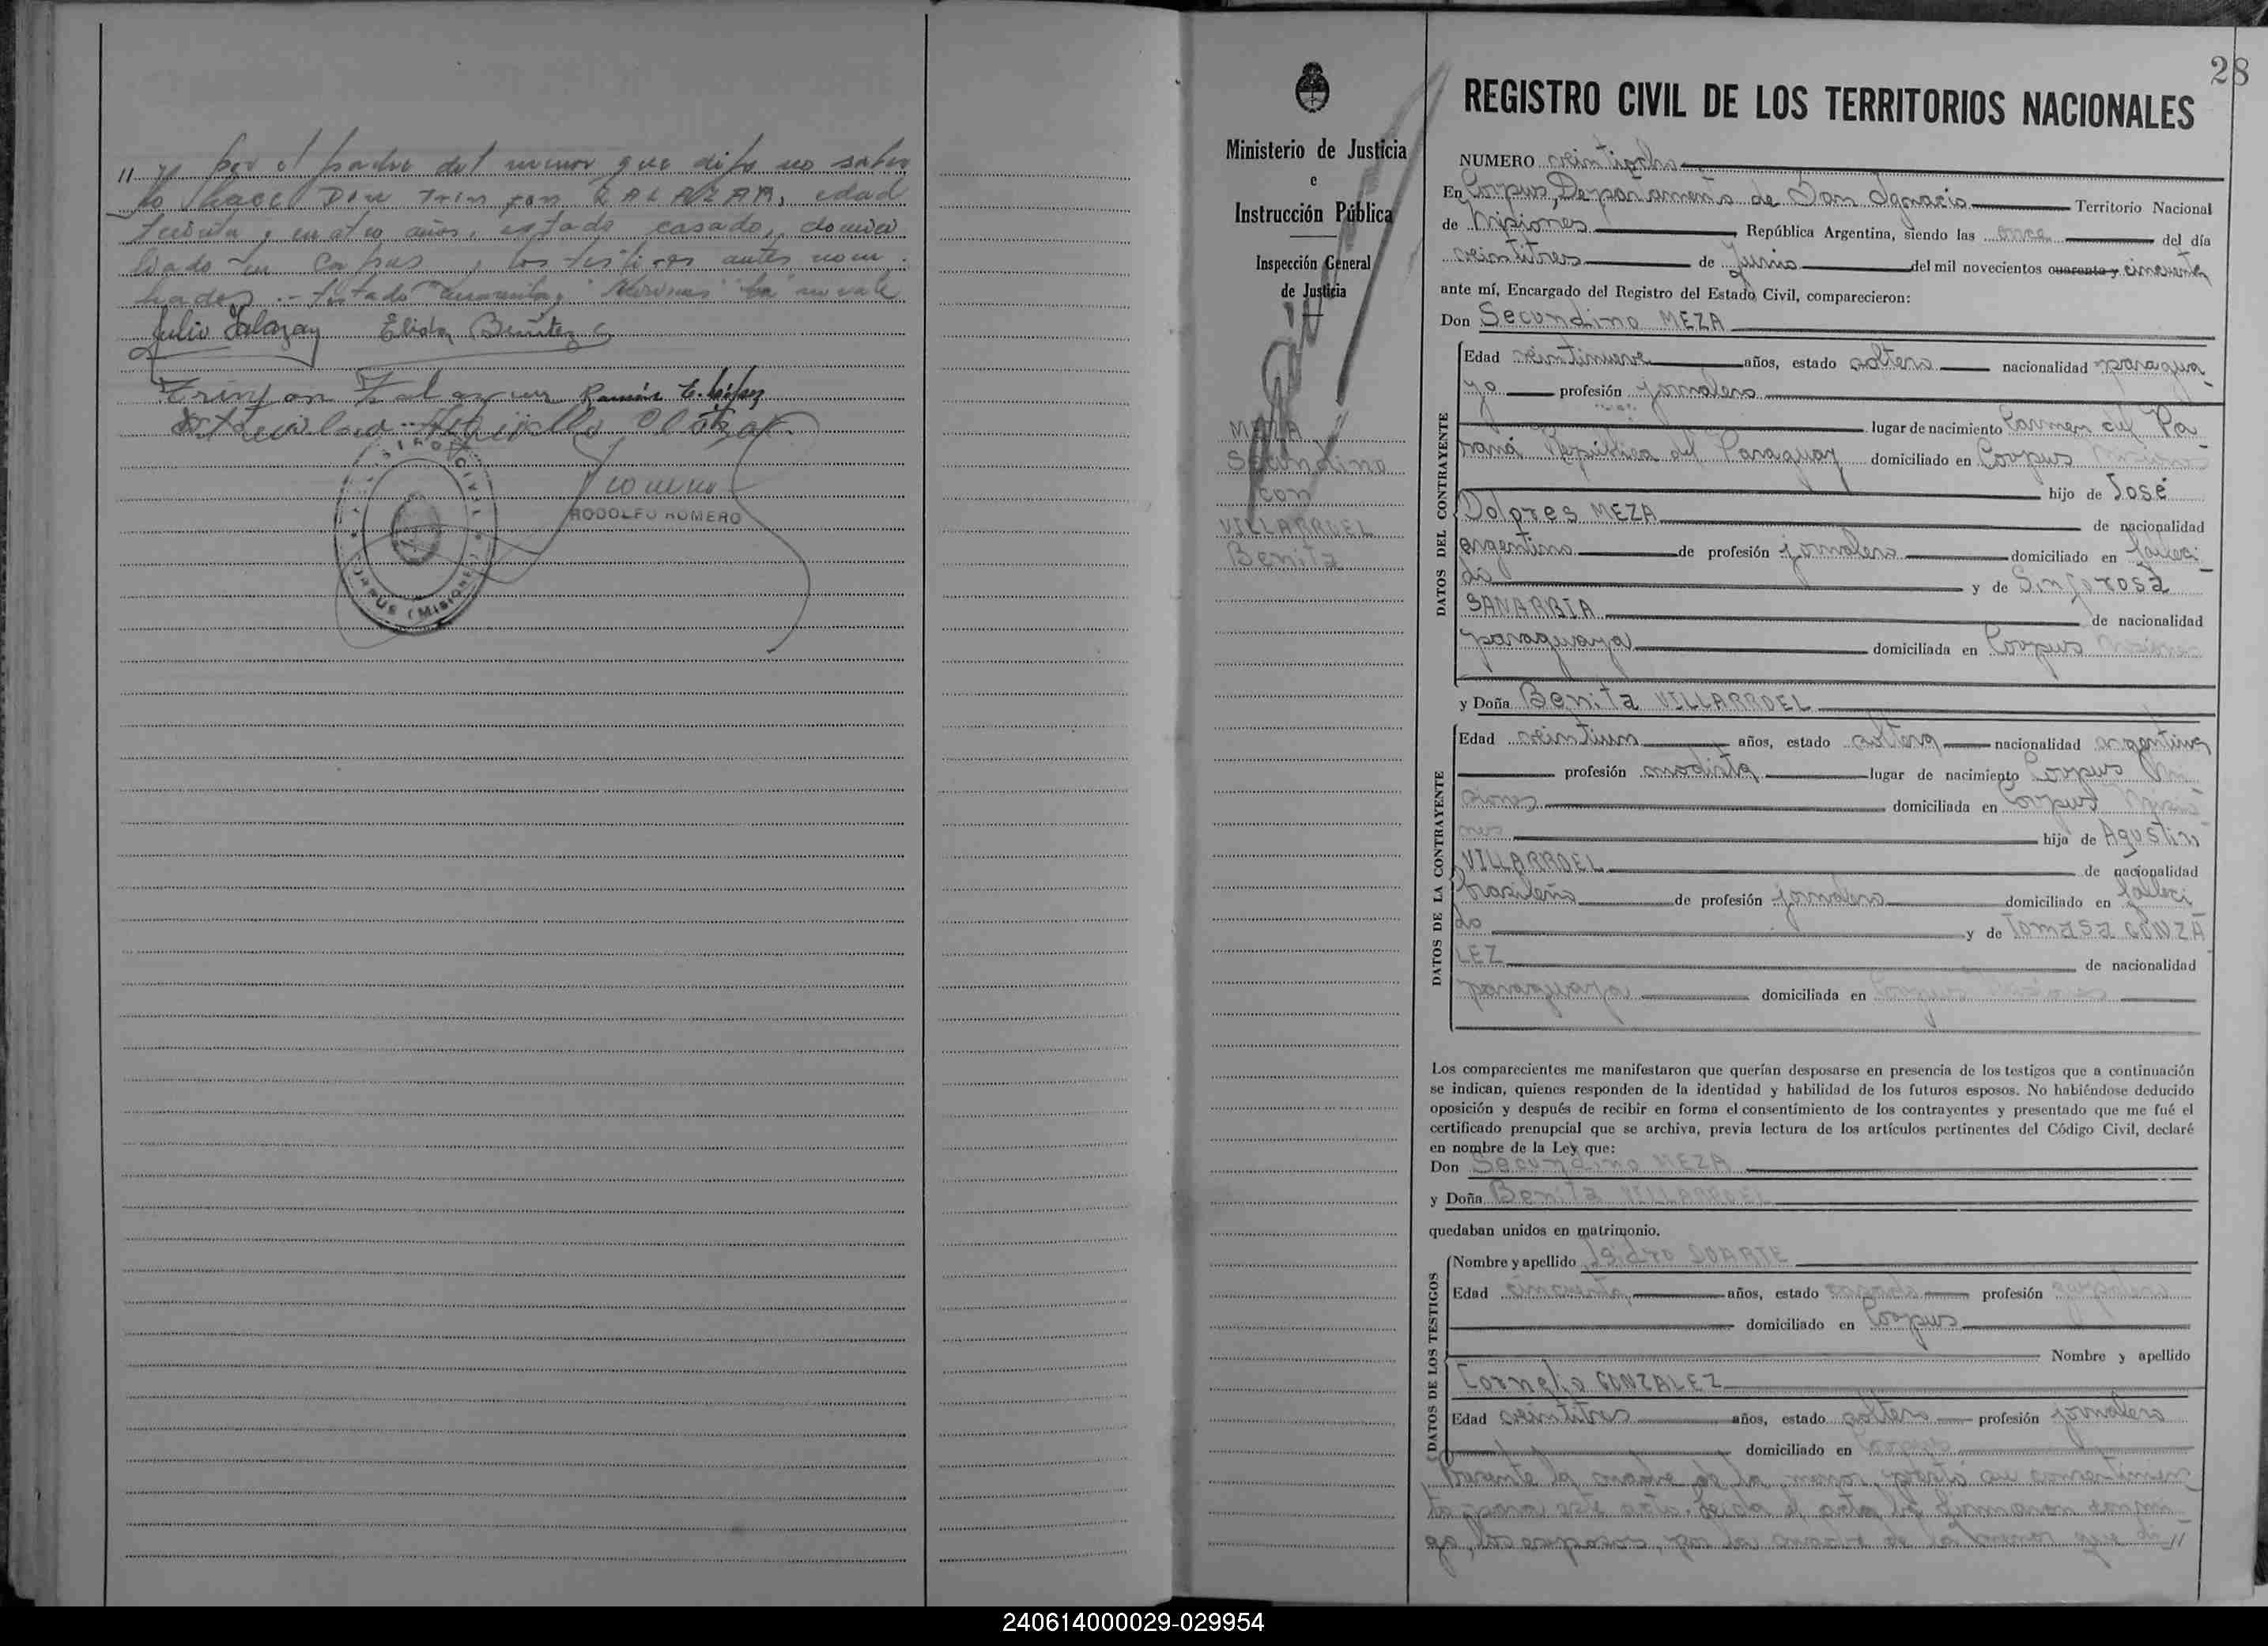 " y por el padre del menor que dijo no saber
lo hace Don Trinfon ZALAZAR, edad
treinta y cuatro años, estado casado, domici
liado en Corpus y los testigos antes nom
brados.- Testado "cuarenta y" "Misiones" "ta" no vale
Julio Zalazar Elida Benitez
Trinfon Zalazar Ramón E. López
RODOLFO ROMERO
CORPUS (MISIONES)
28
Ministerio de Justicia
e
Instrucción Pública
Inspección General
de Justicia
MEZA
Secundino
con
VILLARROEL
Benita
REGISTRO CIVIL DE LOS TERRITORIOS NACIONALES
NUMERO veintiocho
En Corpus, Departamento de San Ignacio Territorio Nacional
de Misiones República Argentina, siendo las once del día
veintitres de Junio del mil novecientos cuarenta y cincuenta
ante mí, Encargado del Registro del Estado Civil, comparecieron:
Don Secundino MEZA
DATOS DEL CONTRAYENTE
Edad veintinueve años, estado soltero nacionalidad paragua
yo profesión jornalero
lugar de nacimiento Carmen del Pa
raná República del Paraguay domiciliado en Corpus Misiones
hijo de José
Dolores MEZA de nacionalidad
argentino de profesión jornalero domiciliado en falleci
do y de Sinforosa
SANABRIA de nacionalidad
paraguaya domiciliada en Corpus Misiones
y Doña Benita VILLARROEL
DATOS DE LA CONTRAYENTE
Edad veintiun años, estado soltera nacionalidad argentina
profesión modista lugar de nacimiento Corpus Mi
siones domiciliada en Corpus Misio
nes hija de Agustin
VILLARROEL de nacionalidad
brasileño de profesión jornalero domiciliado en falleci
do y de Tomasa GONZA
LEZ de nacionalidad
paraguaya domiciliada en Corpus Misiones
Los comparecientes me manifestaron que querían desposarse en presencia de los testigos que a continuación
se indican, quienes responden de la identidad y habilidad de los futuros esposos. No habiéndose deducido
oposición y después de recibir en forma el consentimiento de los contrayentes y presentado que me fué el
certificado prenupcial que se archiva, previa lectura de los artículos pertinentes del Código Civil, declaré
en nombre de la Ley que:
Don Secundino MEZA
y Doña Benita VILLARROEL
quedaban unidos en matrimonio.
DATOS DE LOS TESTIGOS
Nombre y apellido Isidro DUARTE
Edad cincuenta años, estado casado profesión
domiciliado en Corpus
Nombre y apellido
Cornelio GONZALEZ
Edad veintitres años, estado soltero profesión jornalero
domiciliado en Corpus
Presente la madre de la menor prestó su consentimien
to para este acto. Leida el acta la firmaron conmi
go, los esposos, por la madre de la menor que di"
240614000029-029954